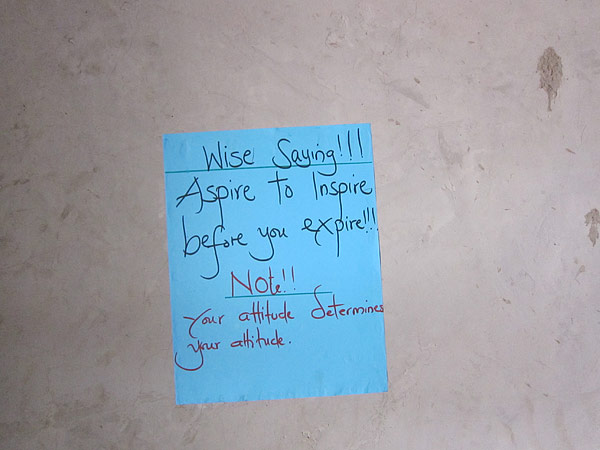 Wise Saying!!!
Aspire to Inspire
before you expire!!!
Note!!
Your attitude determines
your attitude.